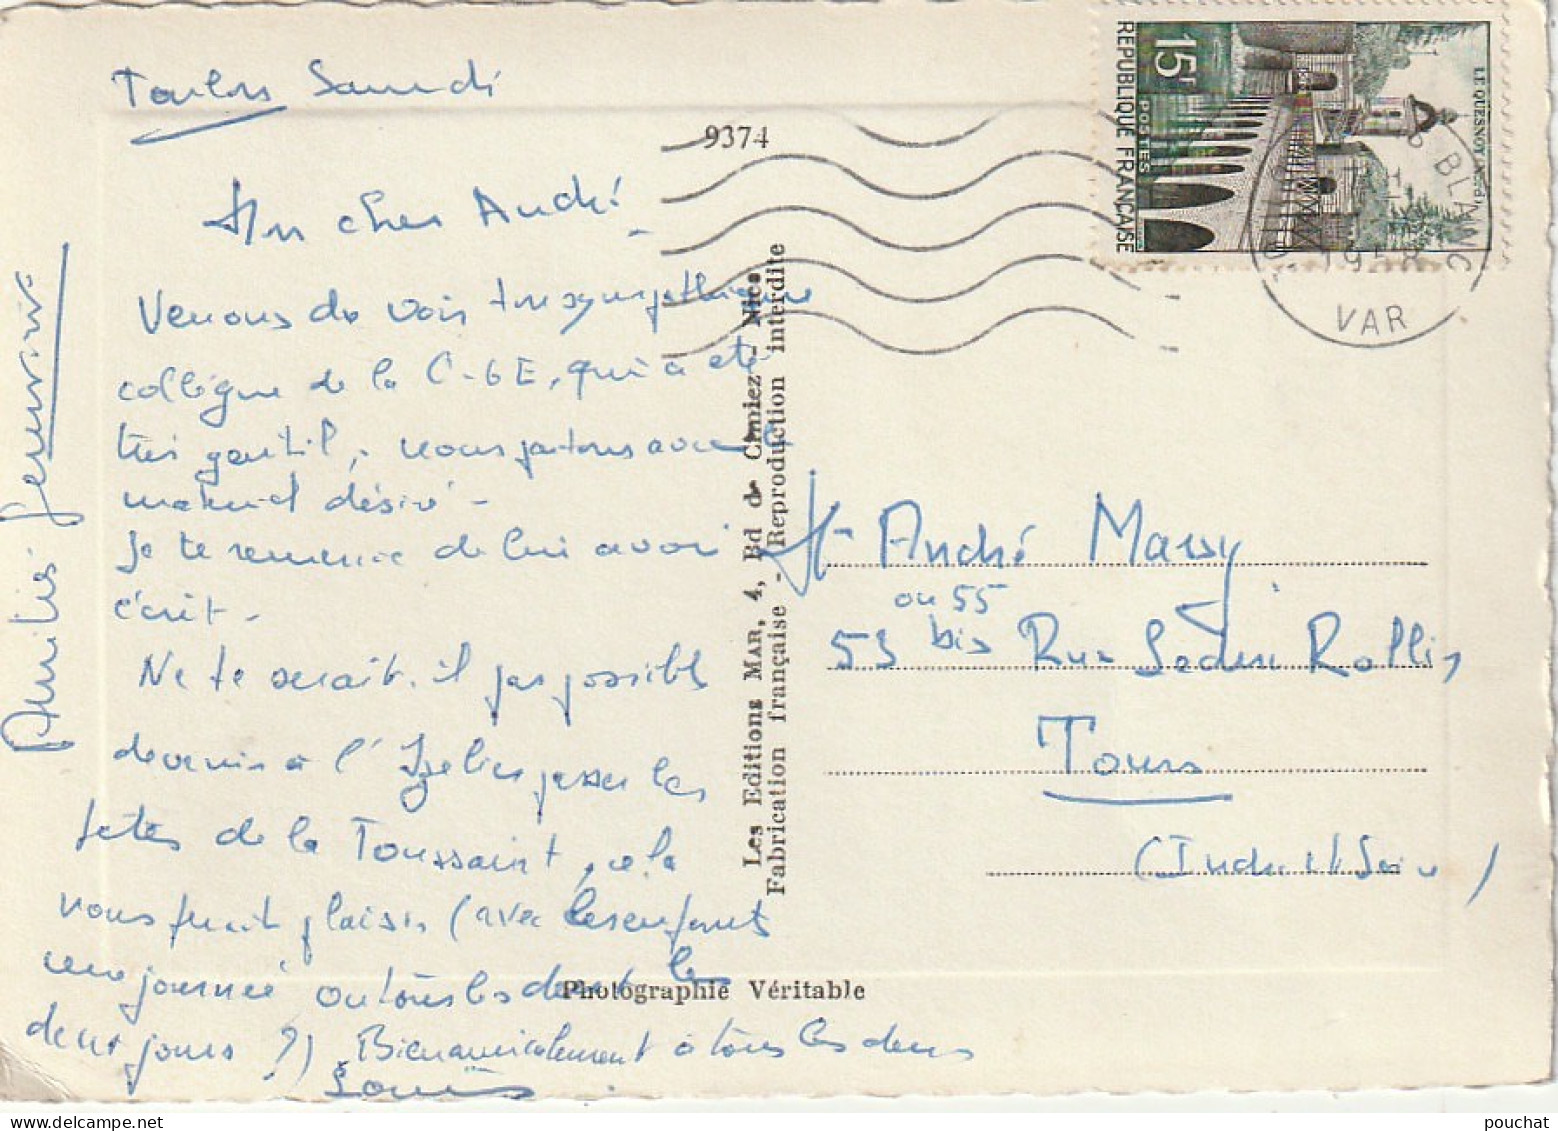 Toulon Samedi
Mon cher André
Venons de voir ton sympathique
collègue de la C-GE, qui a été
très gentil, nous partons avec le
matériel désiré -
Je te remercie de lui avoir
écrit -
Ne te serait-il pas possible
de venir à l' passer les
fêtes de la Toussaint, cela
nous ferait plaisir (avec les enfants
une journée ou tous les deux les
deux jours ?) Bien amicalement à tous les deux
Louis
Amitiés
9374
Les Editions MAR, 4, Bd de Cimiez - Nice
Fabrication française - Reproduction interdite
Photographie Véritable
15F
POSTES
REPUBLIQUE FRANÇAISE
LE QUESNOY
BLANC
VAR
M André Massy
ou 55
53 bis Rue Ledru Rollin
Tours
(Indre et Loire)
pouchat